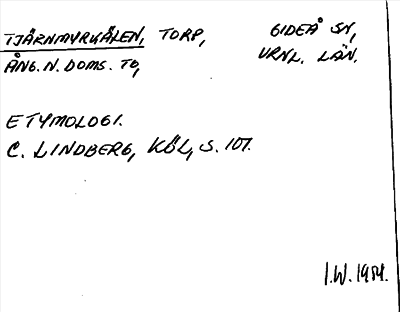 TJÄRNMYRKÅLEN, TORP, GIDEÅ SN,
ÅNG. N. DOMS. TG, VRNL. LÄN.
ETYMOLOGI.
C. LINDBERG, KÖL, S. 107.
I.W. 1954.